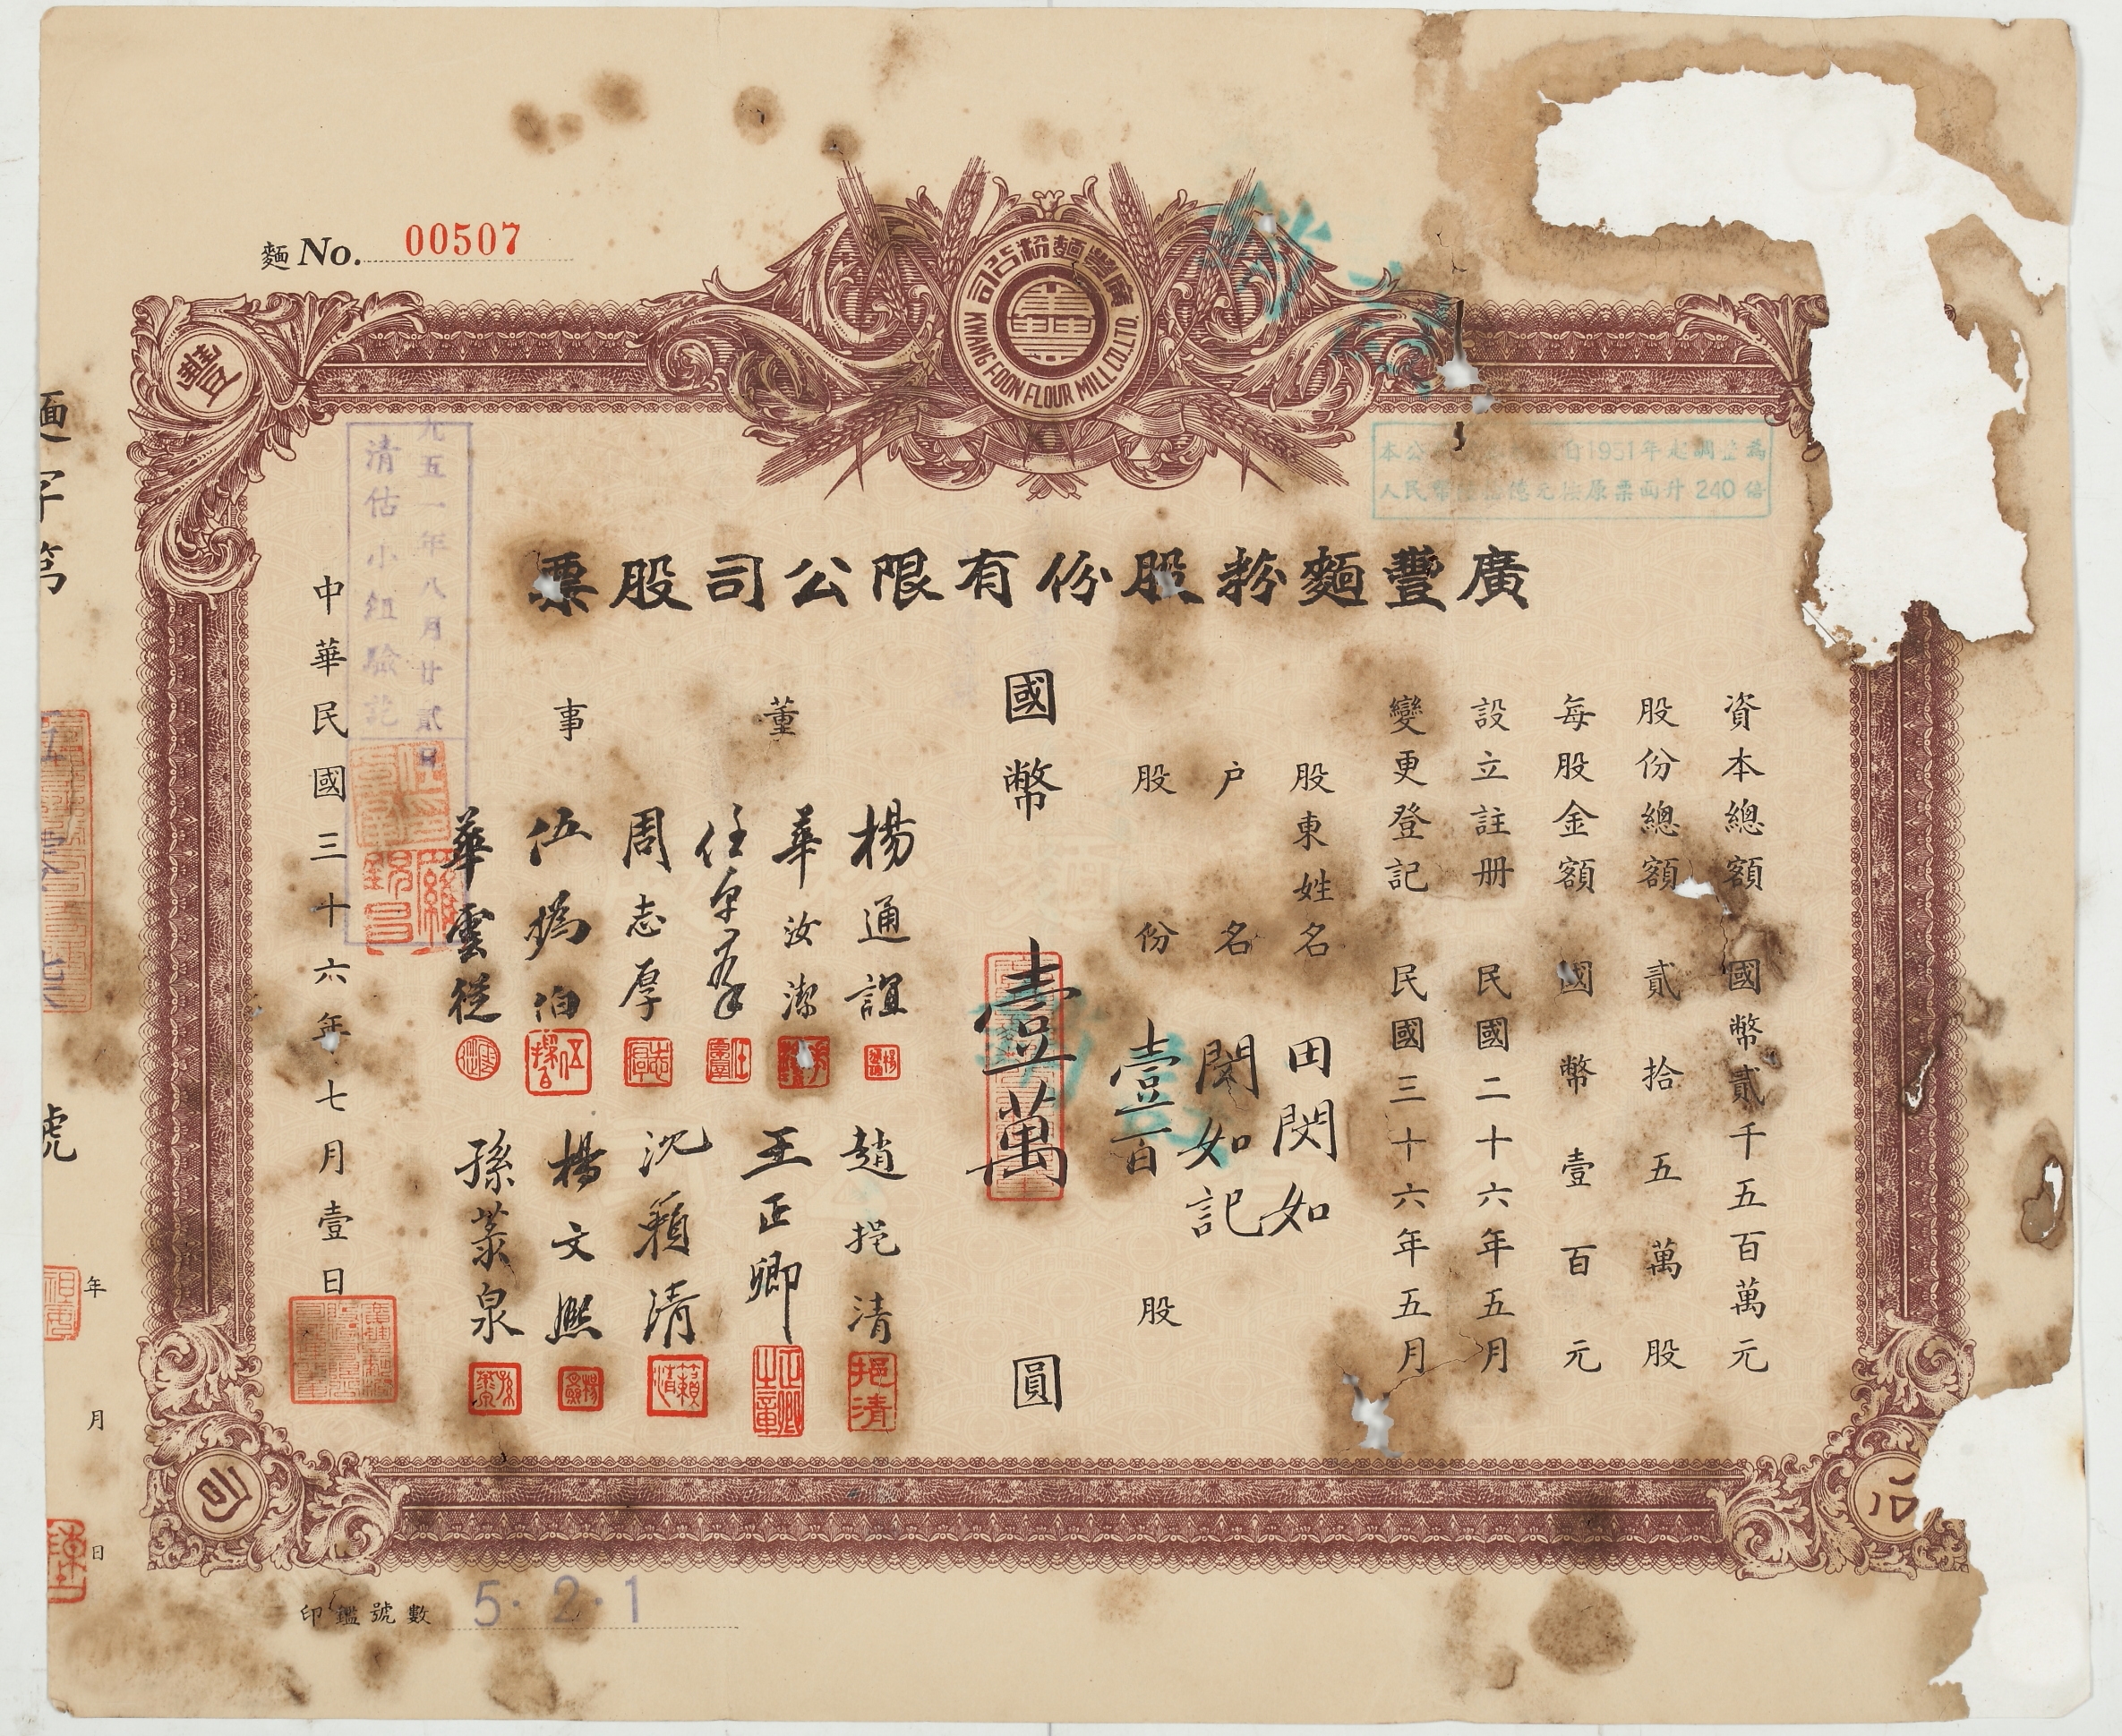 麵 No. 00507
廣豐麵粉公司
KWANG FOON FLOUR MILL CO., LTD.
豐
司
公
本公 1951年起調整為
人民幣 億元按原票面升240倍
廣豐麵粉股份有限公司股票
資本總額 國幣貳千五百萬元
股份總額 貳拾五萬股
每股金額 國幣壹百元
設立註册 民國二十六年五月
變更登記 民國三十六年五月
股東姓名 田閔如
户名 閔如記
股份 壹百 股
國幣 壹萬 圓
董事
楊通誼
華汝潔
任卓羣
周志厚
伍撝伯
華雲從
趙挹清
王正卿
沈籟清
楊文熙
孫蒸泉
九五一年八月廿貳日
清估小組驗訖
中華民國三十六年七月壹日
麵字第 號
年 月 日
印鑑號數 5·2·1